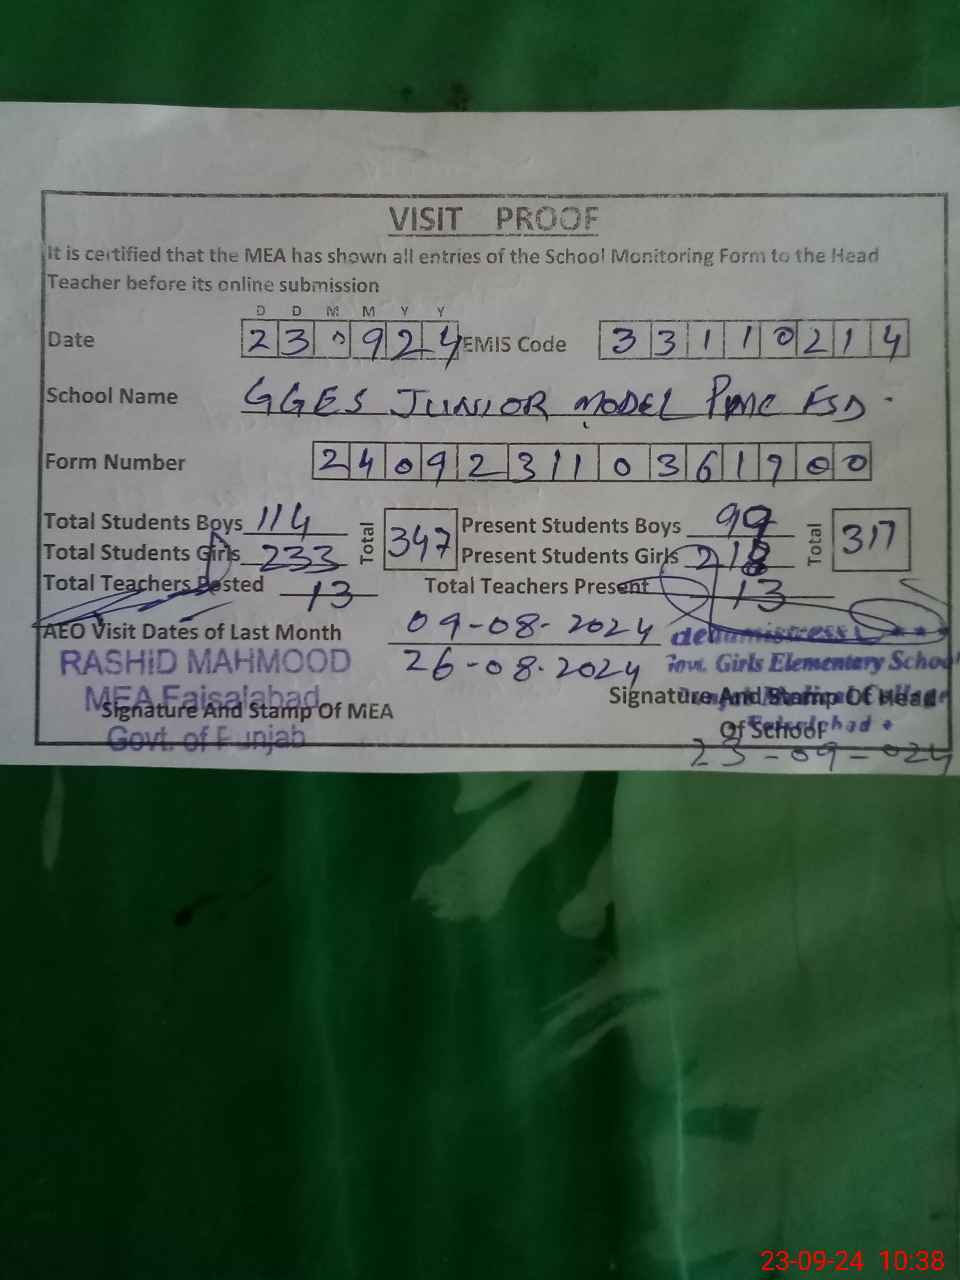 VISIT PROOF
It is certified that the MEA has shown all entries of the School Monitoring Form to the Head
Teacher before its online submission
D D M M Y Y
Date 23 09 24 EMIS Code 33110214
School Name GGES JUNIOR MODEL PMC FSD.
Form Number 240923110361900
Total Students Boys 114 Total 347 Present Students Boys 99 Total 317
Total Students Girls 233 Present Students Girls 218
Total Teachers Posted 13 Total Teachers Present 13
AEO Visit Dates of Last Month 09-08-2024
26-08-2024
RASHID MAHMOOD
MEA Faisalabad
Govt. of Punjab
Signature And Stamp Of MEA
Govt. Girls Elementary School
Signature And Stamp Of Head
Of School
23-09-024
23-09-24 10:38